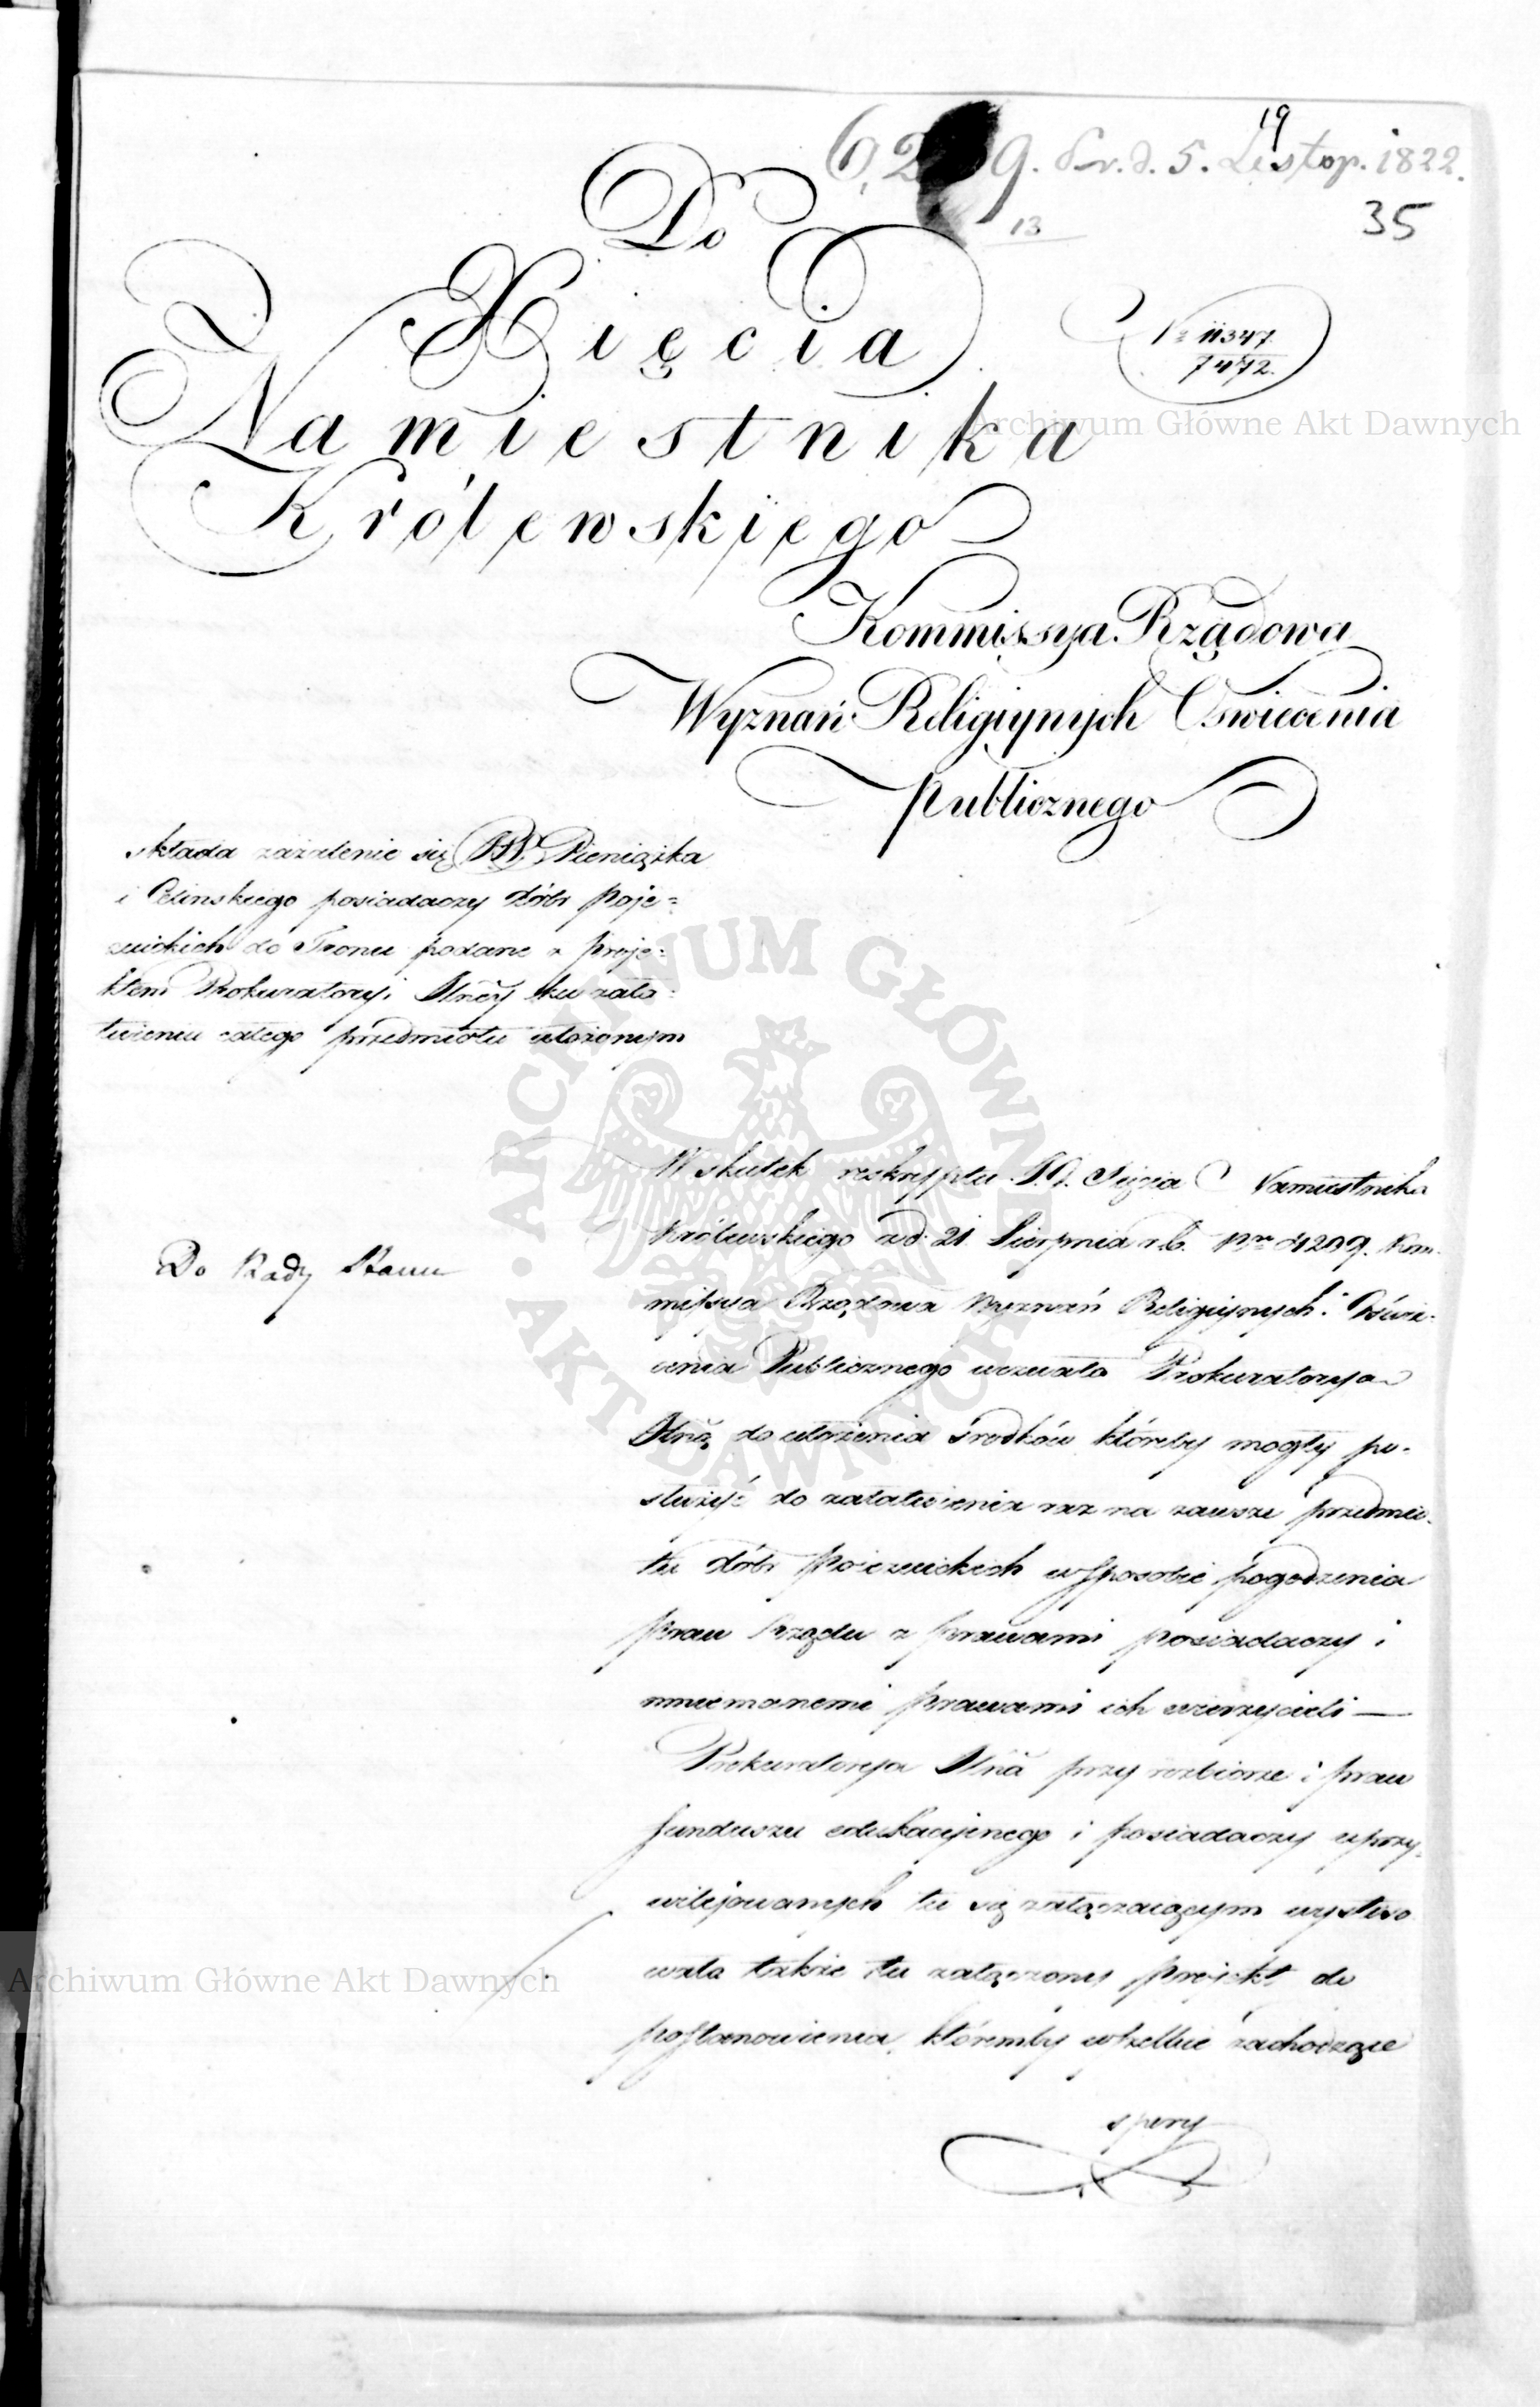 19
6,2 9. Pr. d. 5. Listop. 1822.
13
35
Do
Xięcia
Namiestnika
Królewskiego
No 11347.
7472.
Archiwum Główne Akt Dawnych
Kommissya Rządowa
Wyznań Religiynych Oświecenia
Publicznego
składa zażalenie się JWW. Pieniążka
i Celinskiego posiadaczy dóbr Poje=
zuickich do Tronu podane z proje=
ktem Prokuratoryi Jlney ku zała=
twieniu całego przedmiotu ułożonym
ARCHIWUM GŁÓWNE AKT DAWNYCH
W skutek reskryptu J. O. Xięcia Namiestnika
Królewskiego z d. 21 Sierpnia r. b. Nro 4209. Kom=
missya Rządowa Wyznań Religiynych i Oświe=
cenia Publicznego wezwała Prokuratorya
Jlną do ułożenia środków któreby mogły po=
służyć do załatwienia raz na zawsze przedmio=
tu dóbr Pojezuickich w sposobie pogodzenia
praw Rządu z prawami posiadaczy i
mniemanemi prawami ich wierzycieli —
Do Rady Stanu
Prokuratorya Jlna przy rozbiorze i praw
funduszu edukacyinego i posiadaczy uprzy=
wilejowanych tu się załączaiącym wystoso
wała także tu załączony projekt do
postanowienia, któremby wszelkie zachodzące
spory
Archiwum Główne Akt Dawnych